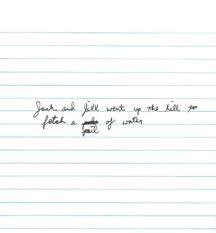 Jack and Jill went up the hill to
fetch a of water
pail